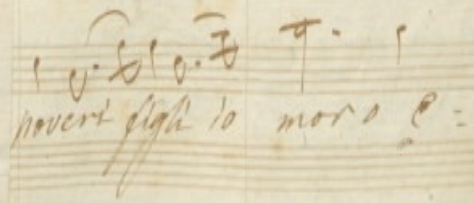 poveri figli io moro e=